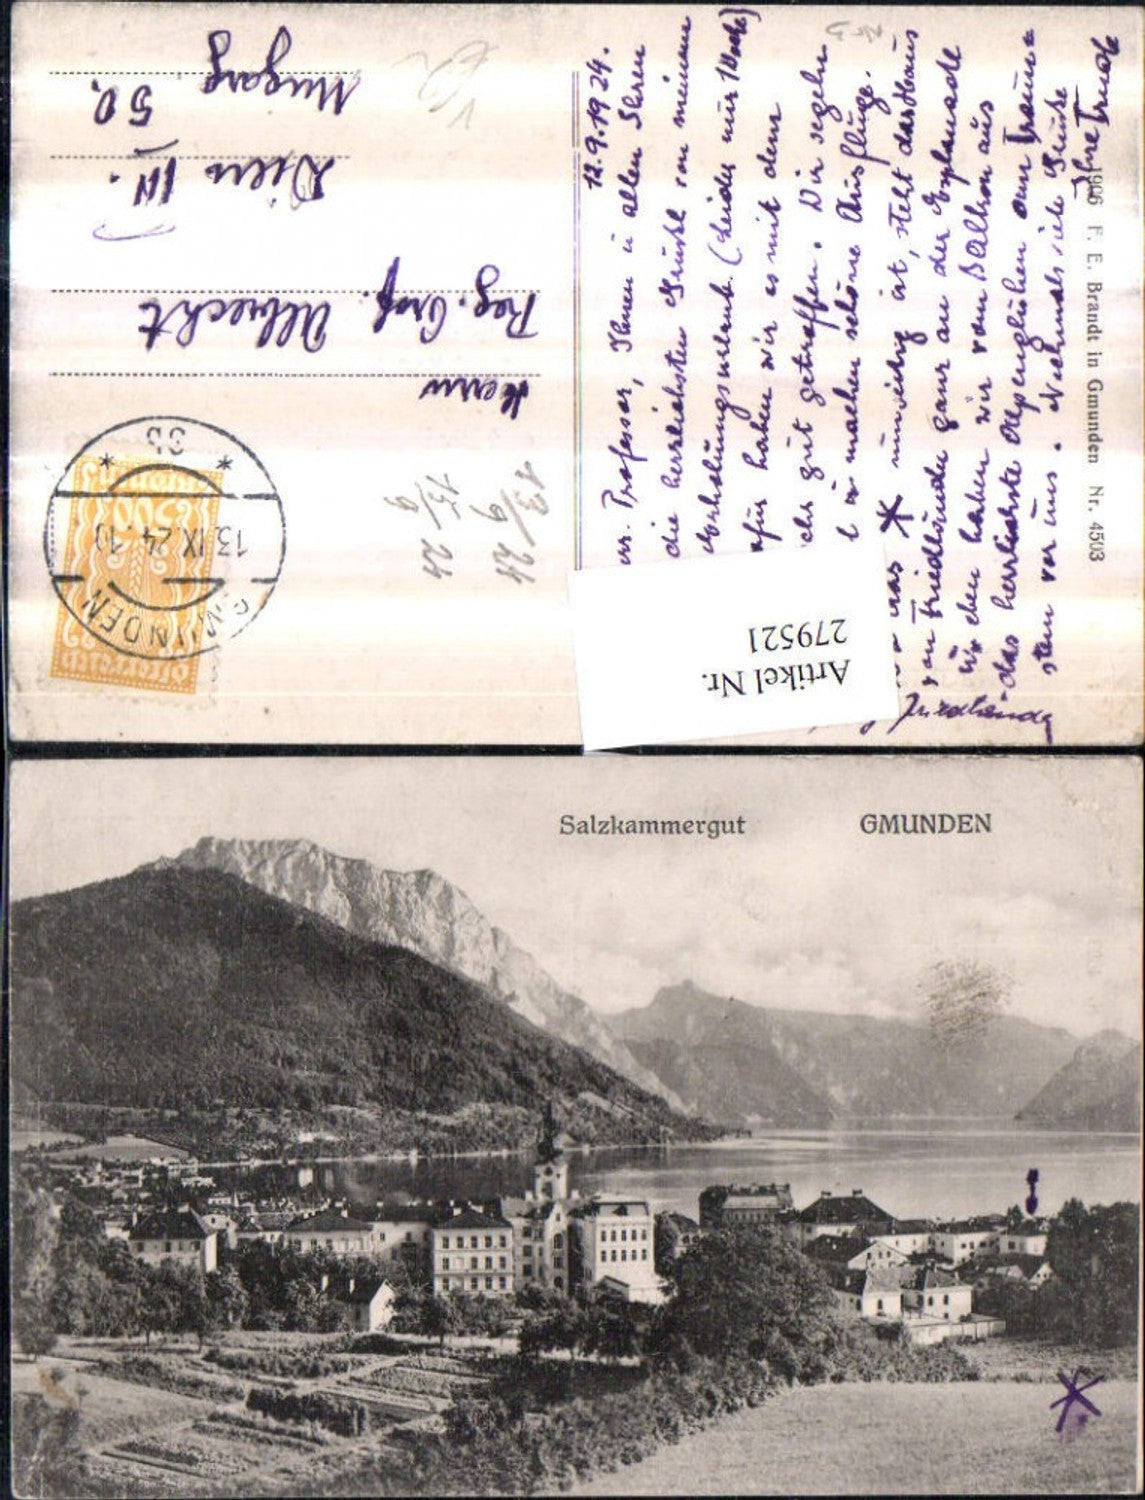 12.9.1924.
Professor, Ihnen u. allen Ihren
die herzlichsten Grüße von meinem
Erholungsurlaub. (Leider nur 1 Woche)
dafür haben wir es mit dem
gut getroffen. Wir segeln
u. machen schöne Ausflüge.
was * umseitig ist, steht das Haus
von Friedländer ganz an der Esplanade
haben wir vom Balkon aus
das herrlichste Alpenglühen am Traun=
stein vor uns. Nochmals viele Grüße
Ihre Trude
Friedländer
1906 F. E. Brandt in Gmunden Nr. 4503
Herrn
Reg. Prof. Albrecht
Wien IV.
50.
13/9 24
15/9 24
GMUNDEN
13.IX.24.10
* 3b *
500
Artikel Nr.
279521
Salzkammergut GMUNDEN